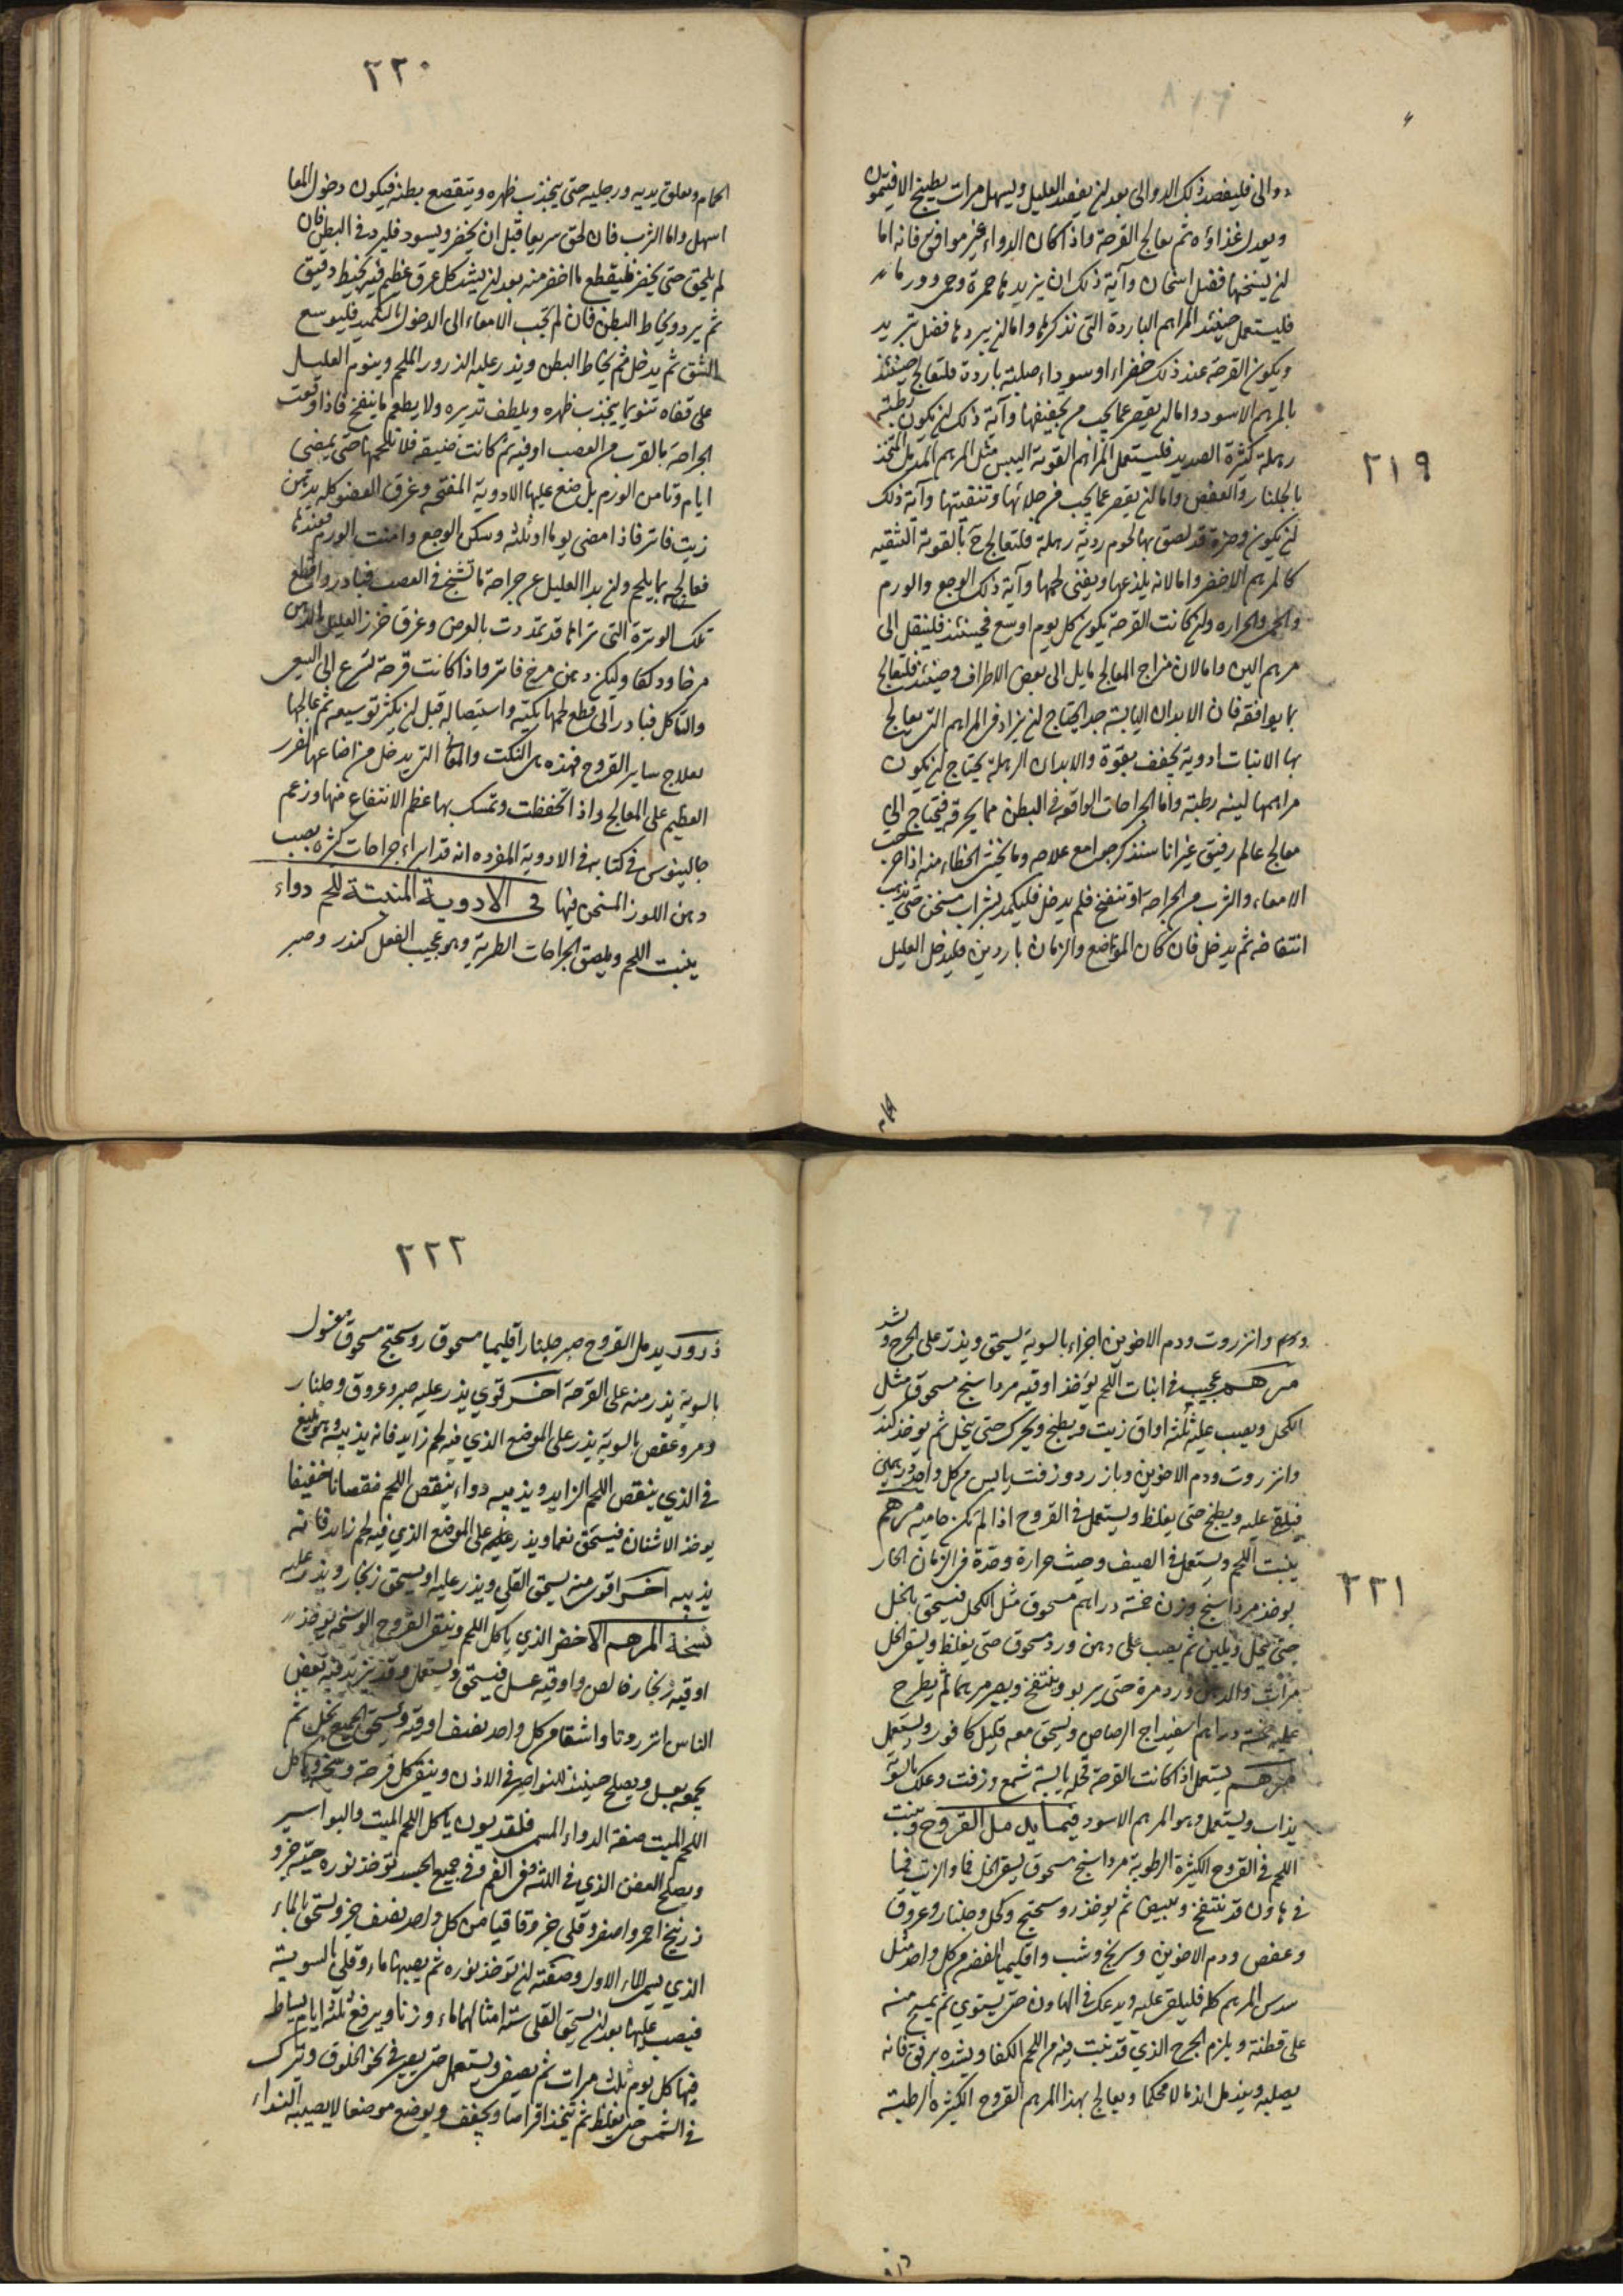 ٢١٩
دوالى فليفصد ذلك الدوالى بعد ان يفصد العليل ويسهل مرات بطبيخ الافتيمون
ويعدل غذاؤه ثم يعالج القرحة واذا كان الدواء غير موافق فانه اما
ان يسخنها فضل اسخان وآية ذلك ان يزيدها حمرة وحمى وورما
فليستعمل حينئذ المراهم الباردة التى نذكرها واما ان يبردها فضل تبريد
ويكون القرحة عند ذلك خضراء او سوداء صلبة باردة فلتعالج حينئذ
بالمرهم الاسود واما ان يقصر عما يجب من تجفيفها وآية ذلك ان يكون رطبة
رهلة كثيرة الصديد فليستعمل المراهم القوية اليبس مثل المرهم المدمل المتخذ
بالجلنار والعفص واما ان يقصر عما يجب من جلائها وتنقيتها وآية ذلك
ان يكون وضرة قد لصق بها لحوم ردية رهلة فلتعالج ح بالقوية التنقيه
كالمرهم الاخضر واما لانه يلذعها ويفنى لحمها وآية ذلك الوجع والورم
والحمى والحراره وان كانت القرحة يكون كل يوم اوسع فحينئذ فلينقل الى
مرهم الين واما لان مزاج المعالج مايل الى بعض الاطراف وحينئذ فلتعالج
بما يوافقه فان الابدان اليابسة جدا يحتاج ان يزاد فى المراهم التى يعالج
بها الانبات ادوية يجفف بقوة والابدان الرهلة يحتاج ان يكون
مراهمها لينه رطبة واما الجراحات الواقعة فى البطن مما يحرقه فيحتاج الى
معالج عالم رفيق غير انا سنذكر جوامع علاجه وما يخشى الخطاء منه اذا خرجت
الامعاء والثرب من الجراحة او تنفخ فلم يدخل فليكمد بشراب مسخن حتى يذهب
انتفاخه ثم يدخل فان كان الموضع والزمان باردين فليدخل العليل
٢٢٠
الحمام ويعلق بيديه ورجليه حتى ينجذب ظهره ويتقصع بطنه فيكون دخول المعا
اسهل واما الثرب فان لحق سريعا قبل ان يخضر ويسود فليرد فى البطن فان
لم يلحق حتى يخضر فليقطع ما اخضر منه بعد ان يشد كل عرق عظيم فيه بخيط دقيق
ثم يرد ويخاط البطن فان لم تجب الامعاء الى الدخول بالتكميد فليوسع
الشق ثم يدخل ثم يخاط البطن ويذر عليه الذرور الملحم وينوم العليل
على قفاه تنويما ينجذب ظهره ويلطف تدبيره ولا يطعم ما ينفخ فاذا وقعت
الجراحة بالقرب من العصب او فيه ثم كانت ضيقه فلا تلحمها حتى يمضى
ايام وتامن الورم بل ضع عليها الادوية المفتحه وغرق العضو كله بدهن
زيت فاتر فاذا مضى يوما او ثلثه وسكن الوجع وامنت الورم فعندها
فعالجه بما يلحم وان بدا العليل عن جراحة ما تشنج فى العصب فبادر واقطع
تلك الوترة التى تراها قد تمددت بالعرض وغرق خرز العليل بالدهن
مرخا ودلكا وليكن دهن مرخ فاتر واذا كانت قرحة تسرع الى السعى
والتاكل فبادر الى قطع لحمها بكيه واستيصاله قبل ان يكثر توسيعه ثم عالجها
بعلاج ساير القروح فهذه هى النكت والمعانى التى يدخل من اضاعتها الضرر
العظيم على المعالج واذا تحفظت وتمسك بها عظم الانتفاع منها وزعم
جالينوس فى كتابه فى الادوية المفرده انه قد ابراء جراحات كثيره بصب
دهن اللوز المسخن فيها فى الادوية المنبتة للحم دواء
ينبت اللحم ويلصق الجراحات الطرية وهو عجيب الفعل كندر وصبر
٢٢١
ومر وانزروت ودم الاخوين اجزاء بالسوية يسحق ويذر على الجرح ويشد
مرهم عجيب فى انبات اللحم يؤخذ اوقيه مرداسنج مسحوق مثل
الكحل ويصب عليه ثلثة اواق زيت ويطبخ ويحرك حتى ينحل ثم يوخذ كندر
وانزروت ودم الاخوين وبارزد وزفت يابس من كل واحد درهمين
فيلقى عليه ويطبخ حتى يغلظ ويستعمل فى القروح اذا لم تكن حاميه مرهم
ينبت اللحم ويستعمل فى الصيف وحيث حرارة وحدة فى الزمان الحار
يوخذ مرداسنج وزن خمسة دراهم مسحوق مثل الكحل فيسحق بالخل
حتى ينحل ويلين ثم يصب على دهن ورد مسحوق حتى يغلظ ويسقى الخل
مرات والدهن ورد مرة حتى يربو وينتفخ ويصير مرهما ثم يطرح
عليه خمسة دراهم اسفيداج الرصاص ويسحق معه قليل كافور ويستعمل
مرهم يستعمل اذا كانت القرحة قحله يابسة شمع وزفت وعلك بالسوية
يذاب ويستعمل وهو المرهم الاسود فيما يدمل القروح وينبت
اللحم فى القروح الكثيرة الرطوبة مرداسنج مسحوق يسقى الخل والزيت فيها
فى هاون قد تنتفخ وتبيض ثم يوخذ روسختج وكحل وجلنار وعروق
وعفص ودم الاخوين وسرنج وشب واقليميا الفضه من كل واحد مثل
سدس المرهم كله فليلقى عليه ويدعك فى الهاون حتى يستوى ثم يمسح منه
على قطنة ويلزم الجرح الذى قد نبت فيه من اللحم الكفا ويشده برفق فانه
يصلبه ويندمل اندمالا محكما ويعالج بهذا المرهم القروح الكثيره الرطبة
٢٢٢
ذرور يدمل القروح صبر جلنار اقليميا مسحوق روسختج مسحوق مغسول
بالسوية يذر منه على القرحة اخر قوي يذر عليه صبر وعروق وجلنار
ومر وعفص بالسوية يذر على الموضع الذي فيه لحم زايد فانه يذيبه وهو بليغ
فى الذي ينقص اللحم الزايد ويذيبه دواء ينقص اللحم نقصانا خفيفا
يوخذ الاشنان فيسحق نعما ويذر عليه على الموضع الذي فيه لحم زايد فانه
يذيبه اخر اقوى منه يسحق القلي ويذر عليه او يسحق زنجار ويذر عليه
نسخة المرهم الاخضر الذي ياكل اللحم وينقى القروح الوسخه يوخذ
اوقيه زنجار خالص واوقيه عسل فيسحق ويستعمل وقد يزيد فيه بعض
الناس انزروتا واشقا من كل واحد نصف اوقيه ويسحق الجميع بخل ثم
يجمعه بعسل ويصلح حينئذ للنواصير فى الاذن وينقى كل قرحة وسخه وياكل
اللحم الميت صفة الدواء المسمى فلقديون ياكل اللحم الميت والبواسير
ويصلح العفن الذي فى اللثة وفى الفم وفى جميع الجسد تؤخذ نوره حيه جزو
زرنيخ احمر واصفر وقلى جزو قاقيا من كل واحد نصف جزو يسحق بالماء
الذي يسمى الماء الاول وصفته ان تؤخذ نوره ثم يصبها ماء وقلى بالسوية
فيصب عليها بعد ان يسحق القلى ستة امثالها ماء وزنا ويرفع ثلثة ايام يساط
فيها كل يوم ثلث مرات ثم يصفى ويستعمل حتى يصير فى نحو الخلوق ويترك
فى الشمس حتى يغلظ ثم يتخذ اقراصا ويجفف ويوضع موضعا لا يصيبه النداء